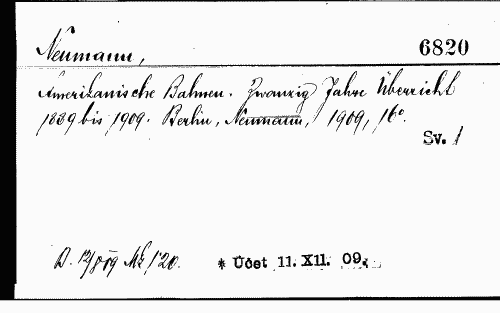 Neumann, 6820
Amerikanische Bahnen. Zwanzig Jahre Überricht
1889 bis 1909. Berlin, Neumann, 1909, 16°.
Sv. 1
D. 12/859 Mk 1'20. * Účet 11. XII. 09.